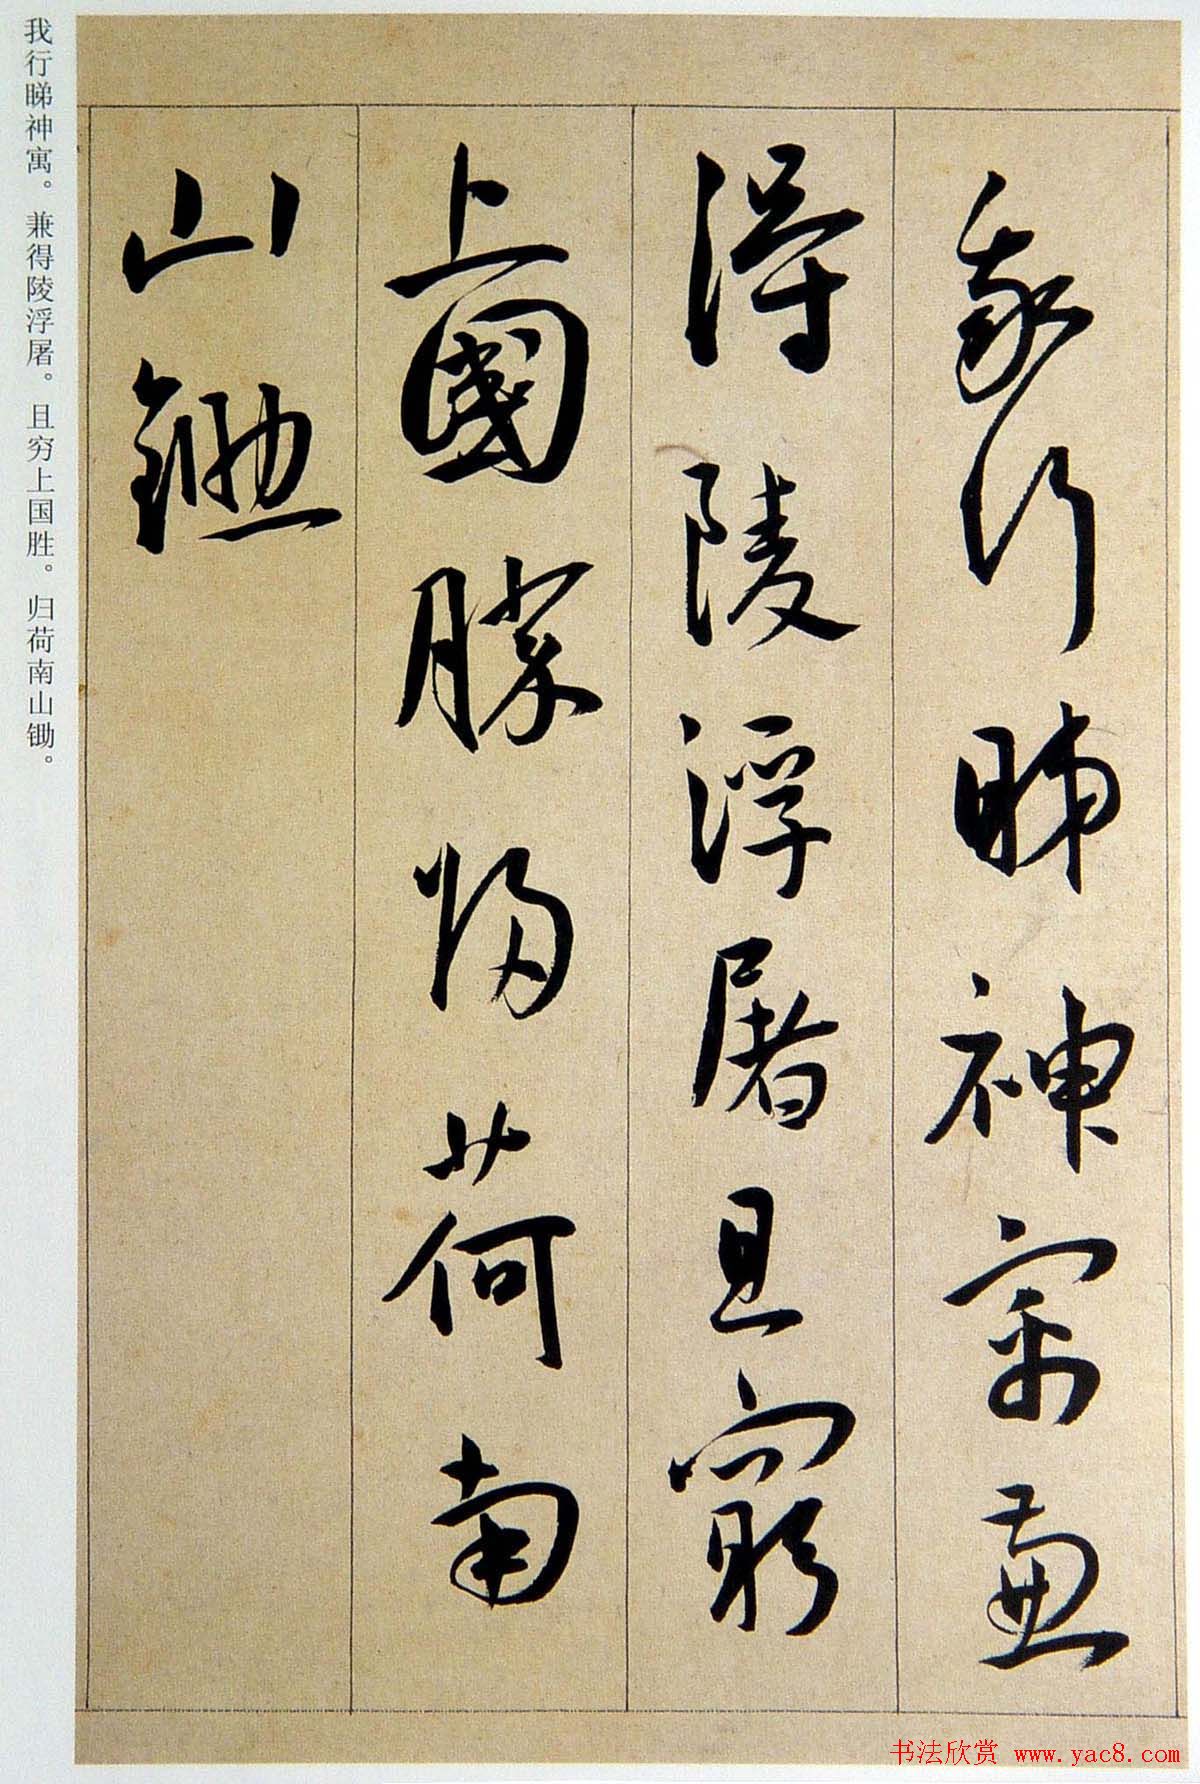 我行睇神寓。兼得陵浮屠。且穷上国胜。归荷南山锄。
我行睇神寓兼
得陵浮屠且窮
上國勝归荷南
山鋤
书法欣赏 www.yac8.com